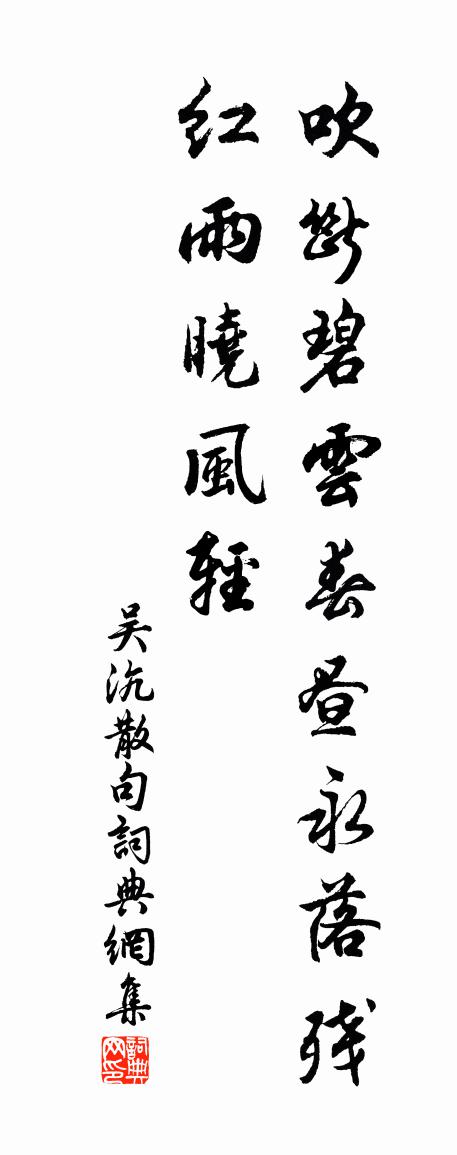 吹斷碧雲春晝永落殘
紅雨曉風輕
吴沉散句詞典網集
詞典网印